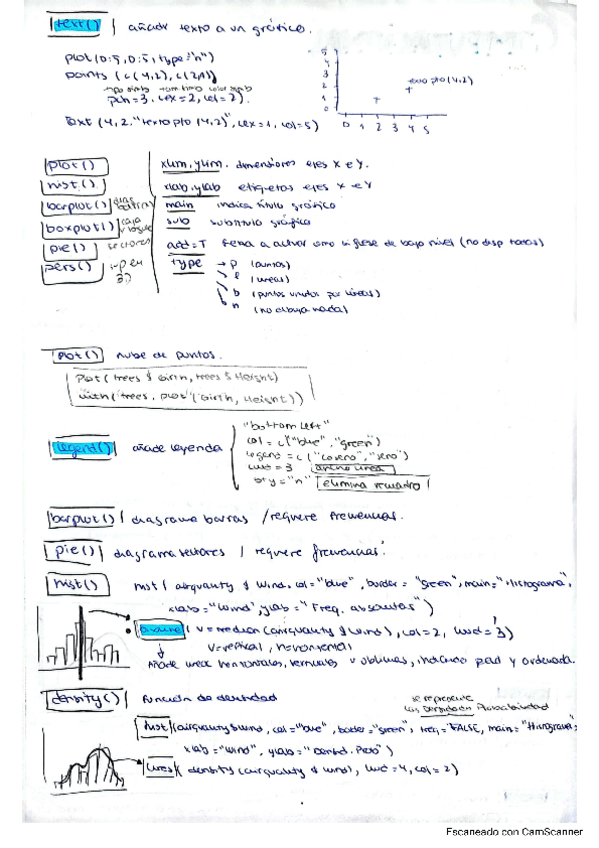 text() añadir texto a un gráfico.
plot(0:5, 0:5, type="n")
points (c(4,2), c(2,1))
pch=3, cex=2, col=2).
text (4,2, "texto pto (4,2)", cex=1, col=5)
5
4
3
2
1
0
texto pto (4,2)
0 1 2 3 4 5
plot()
hist()
barplot() diag barras
boxplot() caja
pie() sectores
pers() sup en 3D
xlim, ylim. dimensiones ejes X e Y.
xlab, ylab etiquetas ejes X e Y
main indica título gráfico
sub subtítulo gráfico
add=T
type → p (puntos)
l (líneas)
b (puntos unidos por líneas)
n (no dibuja nada)
plot() nube de puntos.
Plot (trees $ Girth, trees $ Height)
with (trees, plot (Girth, Height))
legend() añade leyenda
"bottom left"
col = c("blue", "green")
legend = c ("coseno", "seno")
lwd = 3 ancho línea
bty = "n" elimina recuadro
barplot() diagrama barras / requiere frecuencias.
pie() diagrama sectores / requiere frecuencias.
hist() hist ( airquality $ Wind, col="blue", border = "green", main="Histograma",
xlab="Wind", ylab="Freq. absolutas")
abline ( v=median (airquality $ Wind), col=2, lwd=3)
v=vertical, h=horizontal
Añade líneas horizontales, verticales u oblicuas, indicando pend y ordenada.
density() función de densidad
se representa
las densidades Probabilidad
hist (airquality $ wind, col="blue", border="green", freq=FALSE, main="Histograma",
xlab="wind", ylab="Densid. Prob")
lines ( density (airquality $ wind), lwd=4, col=2)
Escaneado con CamScanner